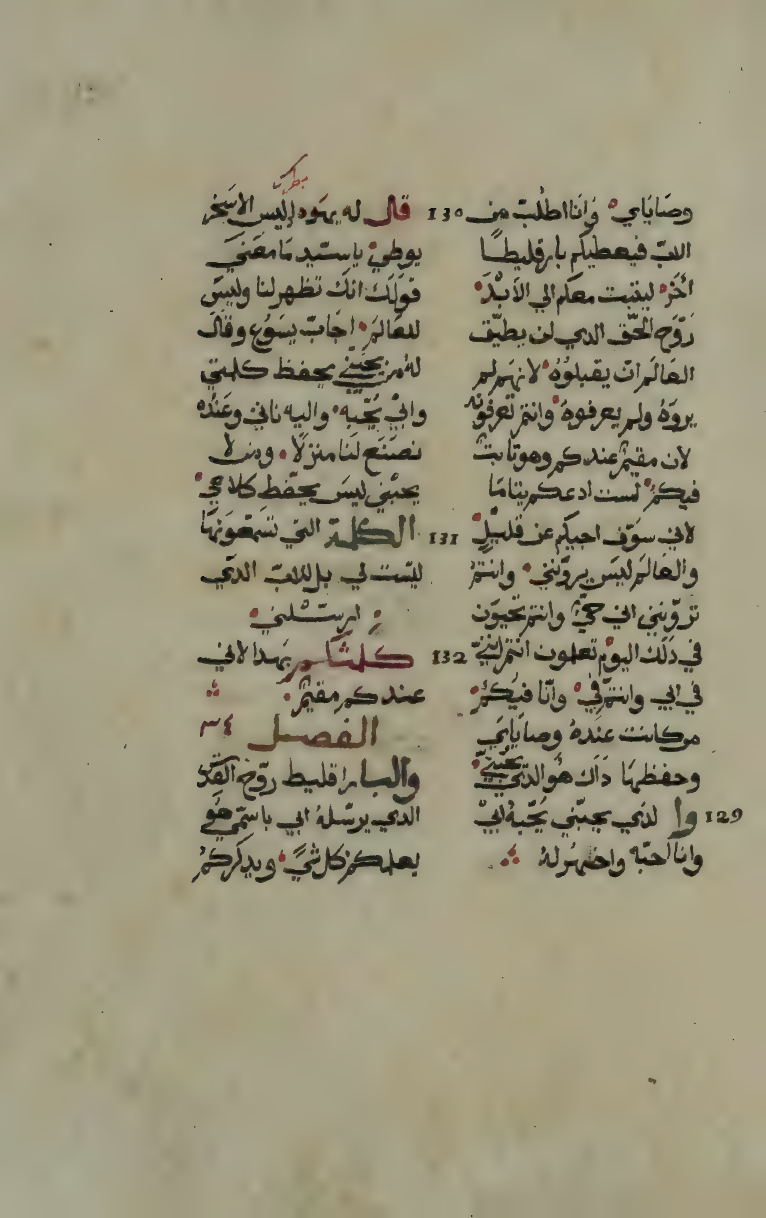 وصَايَاي وَانَا اطْلبْ مِن
الابّ فيعطيكم بارقليطًا
اٰخَر ليتبت معكم الي الابَدْ
رَوّح الحَّق الدي لن يطيّق
العَالمَ انّ يقبلوُه لانهَم لم
يروَهُ ولم يعرفوهُ وانتم تعرفونه
لان مقيمٌ عندكم وهو تابتٌ
فيكم لست ادعكم يتامَا
لاني سَوّف اجيكم عن قليلٍ
والعَالم ليَس يروّنني وانتمْ
تروّنني اني حيٌّ وانتم تحيوَن
في دَلك اليوْم تعلمون انتم انّي
في ابي وانتم فيّ وانَا فيكُمْ
من كانت عندهُ وصَايَايَ
وحفظهَا دَاك هُو الدّي يحبّني
129 والدَي يحبّني يُحّبهُ ابيْ
وانَا احّبه واظهَر لهُ
130 قال له يهَودا ليسَ الاسَخر
يوطي يا سَيد مَا معَني
قوَلك انكَ تظهر لنا وليسّ
للعَالمَ اجَابَ يسَوُع وقالَ
لهُ من يحبّني يحفظ كلمتي
وابيْ يُحّبه واليه ناتي وعَندُه
نصَنَع لنَا منزلًا ومن لا
يحبّني ليسَ يحفّظ كلامي
131 الكلمة التي تسَمعَونهَا
ليسَت لي بل للابّ الدَي
ارسَلني
132 كلمتكم بهَدا لاني
عندكم مقيمٌ
الفصل ٣٤
والبارا قليط روّح القدَس
الدي يرسّلهُ ابي باسمّي هُو
يعلمكم كل شيّ ويدكركمُ